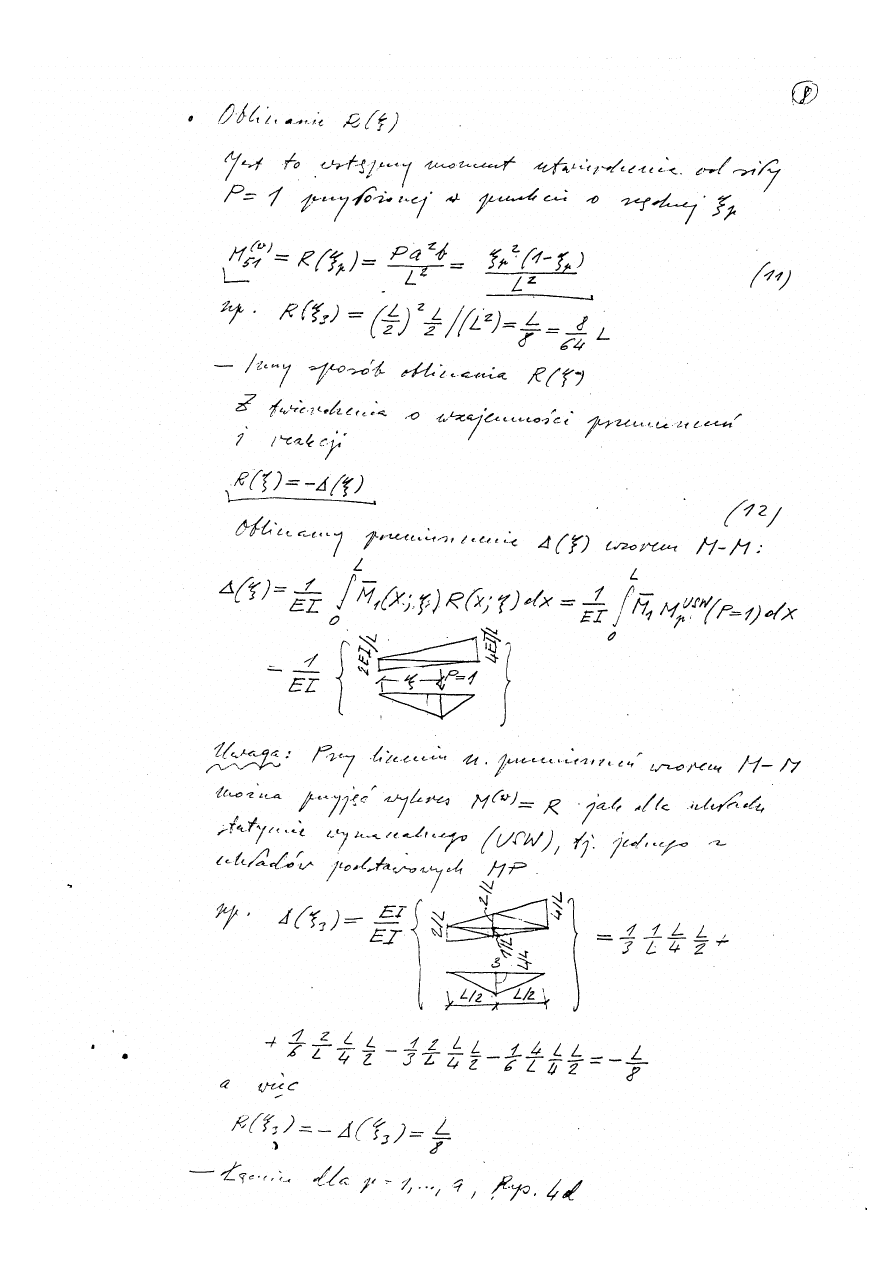 8
• Obliczanie R(ξ)
Jest to wstępny moment utwierdzenia od siły
P=1 przyłożonej w punkcie o rzędnej ξp
M51^(w) = R(ξp) = Pa²b/L² = ξp²(1-ξp)/L² (11)
np. R(ξ3) = (L/2)² L/2 /(L²) = L/8 = 8/64 L
— Inny sposób obliczania R(ξ)
Z twierdzenia o wzajemności przemieszczeń
i reakcji
R(ξ) = -Δ(ξ) (12)
Obliczamy przemieszczenie Δ(ξ) wzorem M-M:
Δ(ξ) = 1/EI ∫0^L M̄1(x;ξ) R(x;ξ) dx = 1/EI ∫0^L M̄1 Mp^USW (P=1) dx
= 1/EI { 2EI/L 4EI/L ξ P=1 }
Uwaga: Przy liczeniu n. przemieszczeń wzorem M-M
można przyjąć wykres M^(w) = R jak dla układu
statycznie wyznaczalnego (USW), tj. jednego z
układów podstawowych MP.
np. Δ(ξ3) = EI/EI { 2/L 2/L 4/L 1/L 3 L/4 L/2 L/2 } = 1/3 1/L L/4 L/2 +
+ 1/6 2/L L/4 L/2 - 1/3 2/L L/4 L/2 - 1/6 4/L L/4 L/2 = - L/8
a więc
R(ξ3) = -Δ(ξ3) = L/8
— Łącznie dla p = 1,..., 9, Rys. 4d